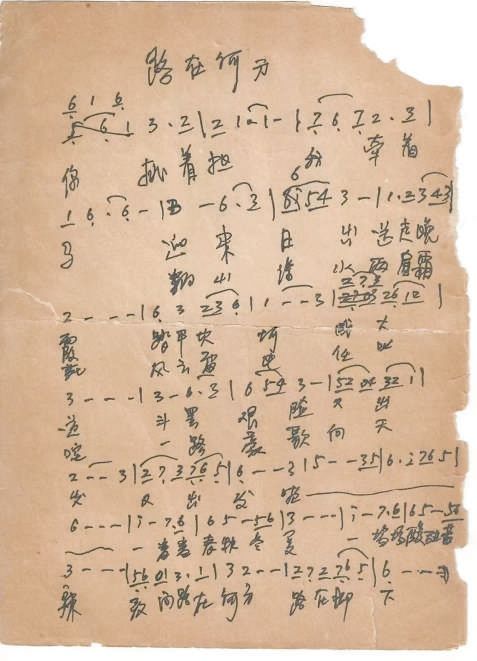 路在何方
6 1 6
1 6 1 3·2 | 2 1· 1 - | 7 6 7 2·3 |
你 挑着担 我 牵着
6
1 6· 6 - | 3 - 6·3 | 6 i 5 4 3 - | 1·2 3 4 3 |
马 迎来日出送走晚
翻山涉水两肩霜
2 7 3
2 - - - | 6 3 2 3 6 | 1 - - 3 | 2 6 1 2 |
霞 踏平坎坷成大
花 风云雷电任叱
3 - - - | 3 - 6·3 | 6 5 4 3 - | 5 2 0 4 3 2 1 |
道 斗罢艰险又出
咤 一路豪歌向天
2 - - 3 | 2 7 3 7 6 5 | 6 - - 3 | 5 - - 3 5 | 6·i 7 6 5 |
发 又出发 啦
6 - - - | i - 7·6 | 6 5 - 5 6 | 3 - - - | i - 7·6 | 6 5 - 5 6
一番番春秋冬夏 一场场酸甜苦
3 - - - | 5 6 0 3·1 | 3 2 - - | 2 7 2 7 6 5 | 6 - - -
辣 敢问路在何方 路在脚下